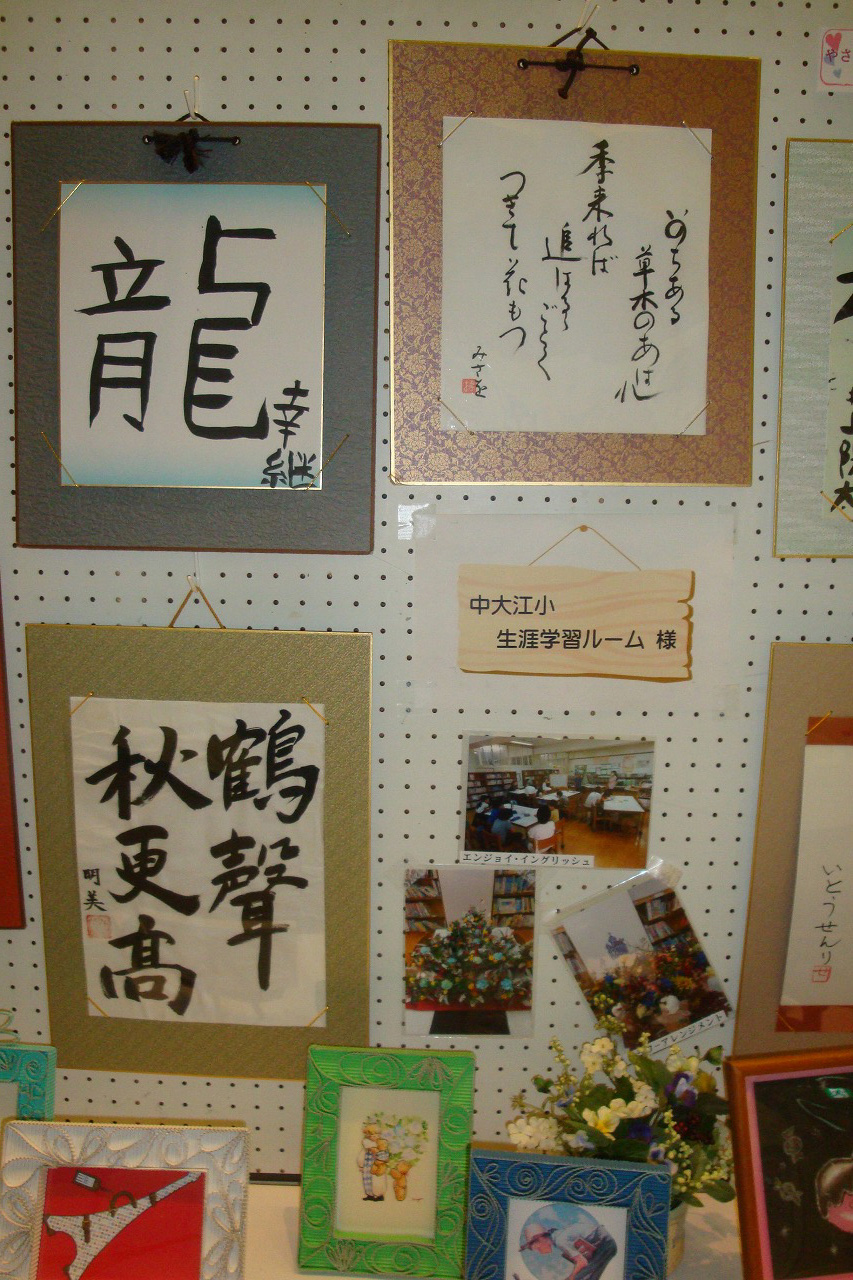 龍
幸
継
いのちある
草木の
季来れば
追はるるごとく
つぎて花もつ
みさを
やさ
中大江小
生涯学習ルーム 様
鶴聲
秋更高
明美
エンジョイ・イングリッシュ
アレンジメント
いとうせんり